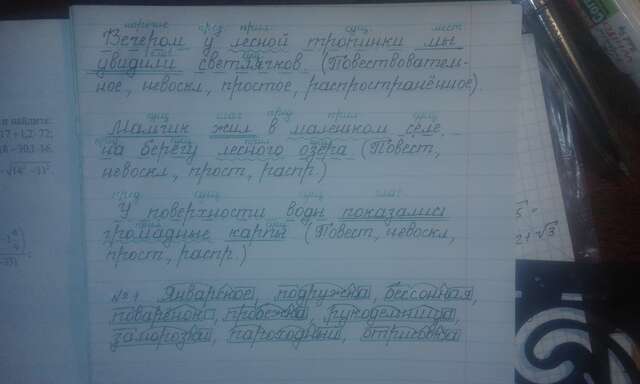 наречие пред. прил. сущ. мест.
Вечером у лесной тропинки мы
увидили светлячков. (Повествователь-
ное, невоскл., простое, распространённое).
сущ. глаг. пред. прил. сущ.
Мальчик жил в маленьком селе,
на берегу лесного озера (Повест,
невоскл, прост, распр.)
пред. сущ. сущ. глаг.
У поверхности воды показались
громадные карпы (Повест, невоскл,
прост, распр.)
№1 Январское, подружка, бессонная,
поварёнок, пробежка, рукодельница,
заморозки, пароходный,